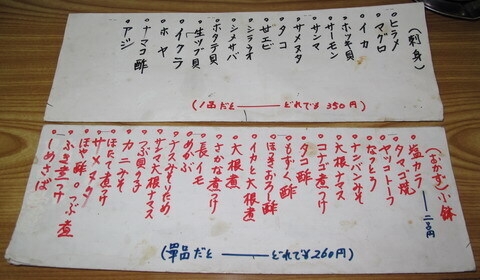 (刺身)
・ヒラメ
・マグロ
・イカ
・ホッキ貝
・サーモン
・サンマ
・サメスタ
・タコ
・甘エビ
・シラウオ
・シメサバ
・ホタテ貝
・生ツブ貝
・イクラ
・ホヤ
・ナマコ酢
・アジ
(1品だと――どれでも350円)
(おかず)小鉢
・塩カラ――二〇〇円
・タマゴ焼
・ヤッコトーフ
・なっとう
・ナンバンみそ
・大根ナマス
・コナゴ煮つけ
・タコ酢
・もずく酢
・ほっきおろし酢
・イカと大根煮
・大根煮
・さかな煮つけ
・長イモ
・めかぶ
・ナスみそいため
・サンマ大根ナマス
・つぶ貝うま煮
・カニみそ
・ほたて煮つけ
・サメスタ
・ほや酢・つぶ煮
・ふき煮つけ
・しめさば
(単品だと――どれでも260円)